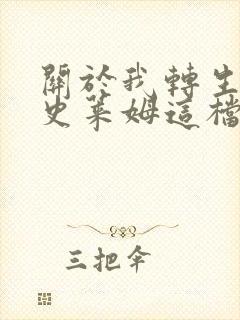 關於我轉生
史萊姆這檔
三把傘